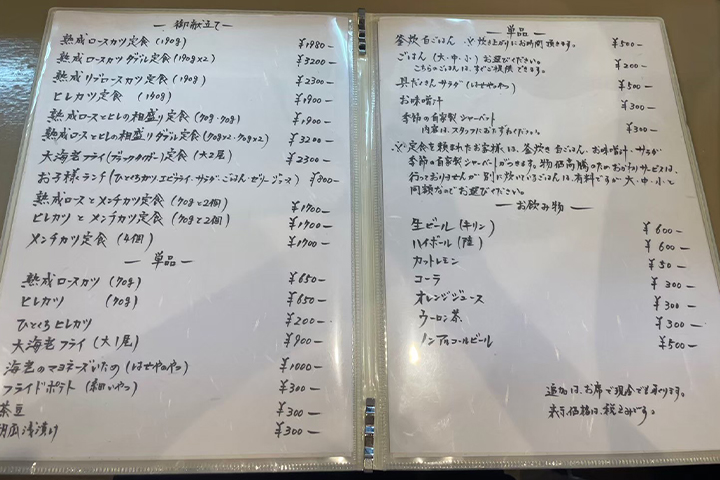 ― 御献立て ―
熟成ロースカツ定食 (190g) ¥1980―
熟成ロースカツダブル定食 (190g×2) ¥3200―
熟成リブロースカツ定食 (190g) ¥2300―
ヒレカツ定食 (140g) ¥1900―
熟成ロースとヒレの相盛り定食 (70g・70g) ¥1900―
熟成ロースとヒレの相盛りダブル定食 (70g×2・70g×2) ¥3200―
大海老フライ(ブラックタイガー)定食 (大2尾) ¥2300―
お子様ランチ (ひとくちカツ・エビフライ・サラダ・ごはん・ゼリー・ジュース) ¥800―
熟成ロースとメンチカツ定食 (70gと2個) ¥1700―
ヒレカツとメンチカツ定食 (70gと2個) ¥1700―
メンチカツ定食 (4個) ¥1700―
― 単品 ―
熟成ロースカツ (70g) ¥650―
ヒレカツ (70g) ¥650―
ひとくちヒレカツ ¥200―
大海老フライ (大1尾) ¥900―
海老のマヨネーズいため (はせやのやつ) ¥1000―
フライドポテト (細いやつ) ¥300―
茶豆 ¥300―
胡瓜浅漬け ¥300―
― 単品 ―
釜炊き白ごはん ※炊き上がりにお時間頂きます。 ¥500―
ごはん (大・中・小) お選びください。 ¥200―
こちらのごはんは、すぐご提供できます。
具だくさんサラダ (はせやのやつ) ¥500―
お味噌汁 ¥300―
季節の自家製シャーベット ¥300―
内容は、スタッフにおたずねください。
※定食を頼まれたお客様には、釜炊き白ごはん、お味噌汁、サラダ
季節の自家製シャーベットがつきます。物価高騰のためおかわりサービスは、
行っておりませんが別に炊いているごはんは、有料ですが大・中・小と
同額なのでお選びください。
― お飲み物 ―
生ビール (キリン) ¥600―
ハイボール (陸) ¥600―
カットレモン ¥50―
コーラ ¥300―
オレンジジュース ¥300―
ウーロン茶 ¥300―
ノンアルコールビール ¥500―
追加は、お席で現金でも承ります。
表示価格は、税込みです。